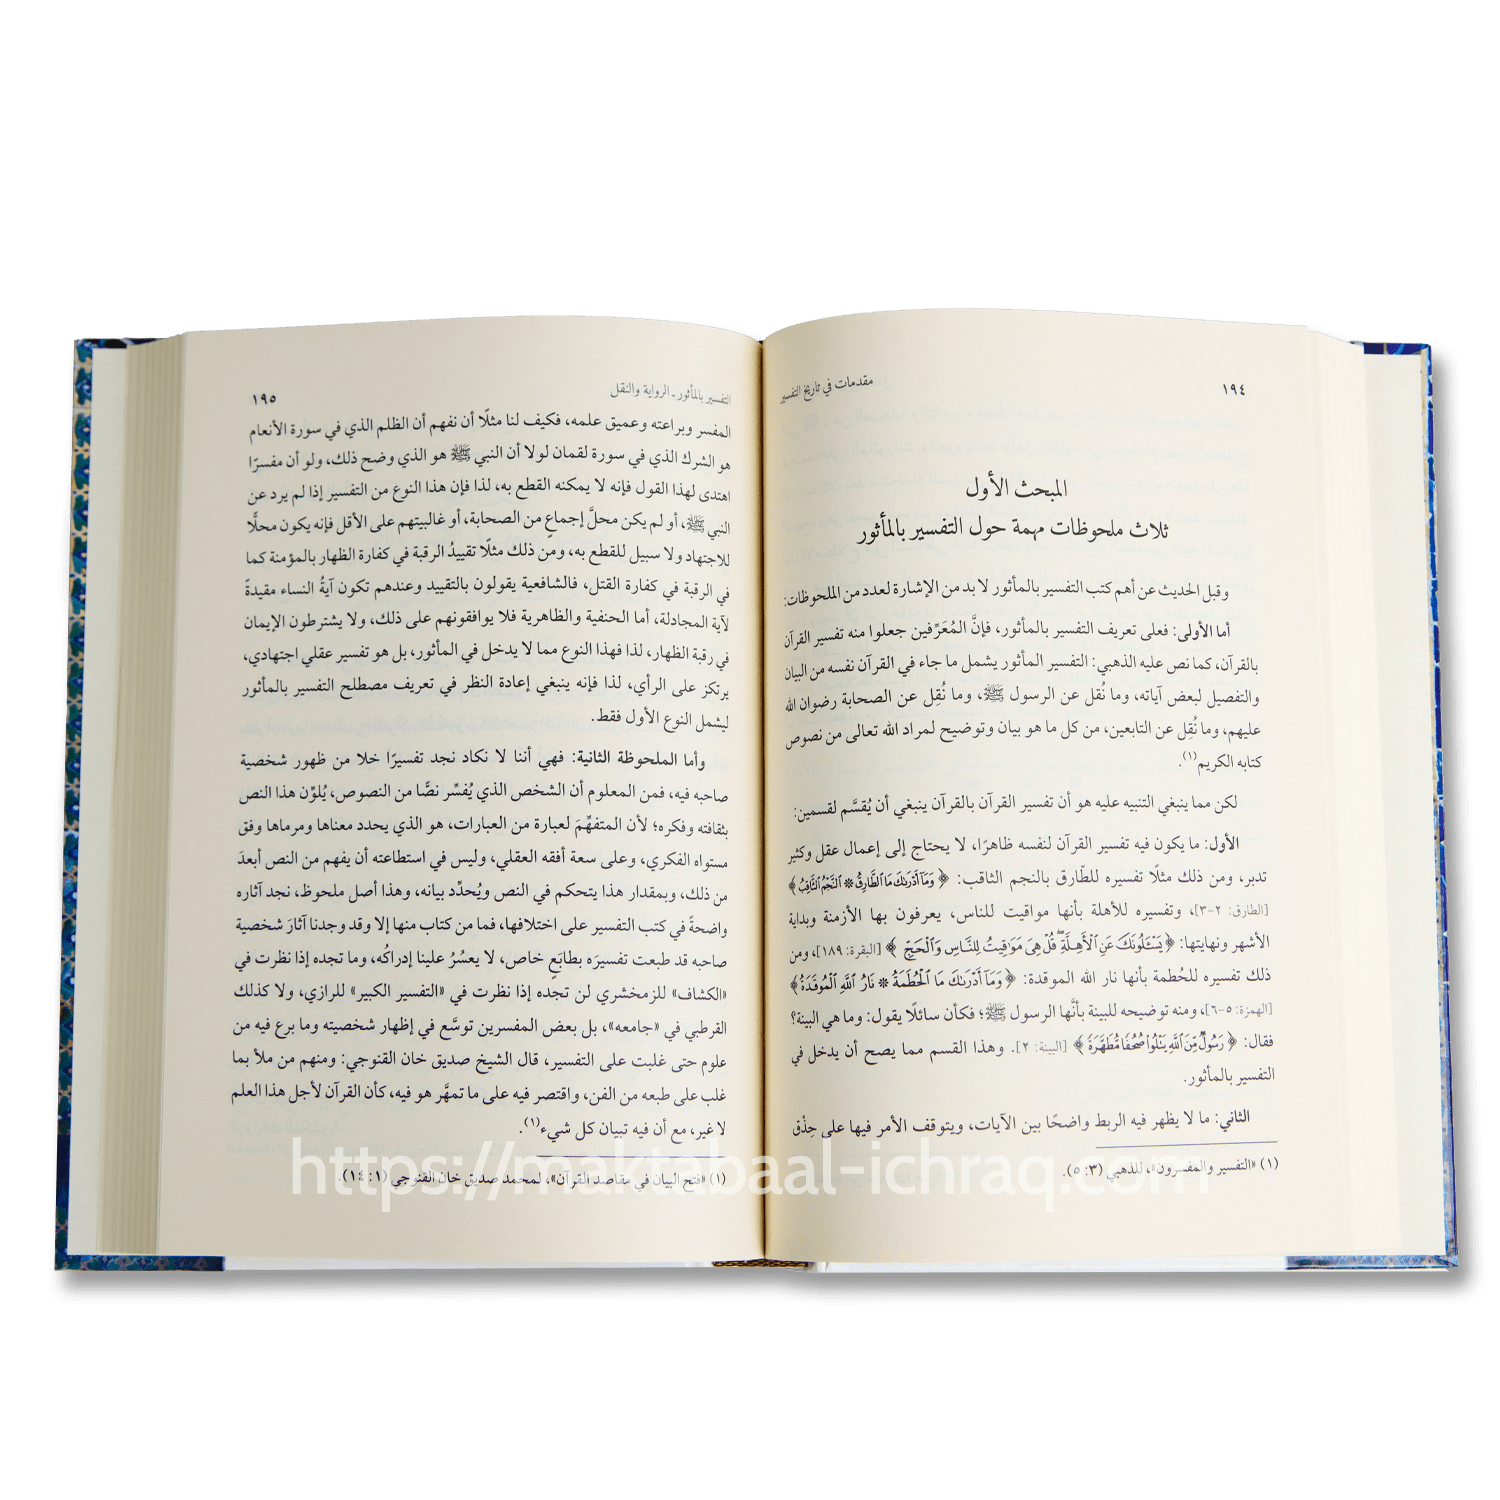 ١٩٤
مقدمات في تاريخ التفسير
المبحث الأول
ثلاث ملحوظات مهمة حول التفسير بالمأثور
وقبل الحديث عن أهم كتب التفسير بالمأثور لا بد من الإشارة لعدد من الملحوظات:
أما الأولى: فعلى تعريف التفسير بالمأثور، فإنَّ المُعَرِّفين جعلوا منه تفسير القرآن
بالقرآن، كما نص عليه الذهبي: التفسير المأثور يشمل ما جاء في القرآن نفسه من البيان
والتفصيل لبعض آياته، وما نُقل عن الرسول ﷺ، وما نُقِل عن الصحابة رضوان الله
عليهم، وما نُقِل عن التابعين، من كل ما هو بيان وتوضيح لمراد الله تعالى من نصوص
كتابه الكريم(١).
لكن مما ينبغي التنبيه عليه هو أن تفسير القرآن بالقرآن ينبغي أن يُقسَّم لقسمين:
الأول: ما يكون فيه تفسير القرآن لنفسه ظاهرًا، لا يحتاج إلى إعمال عقل وكثير
تدبر، ومن ذلك مثلًا تفسيره للطّارق بالنجم الثاقب: ﴿وَمَآ أَدْرَىٰكَ مَا ٱلطَّارِقُ * ٱلنَّجْمُ ٱلثَّاقِبُ﴾
[الطارق: ٢-٣]، وتفسيره للأهلة بأنها مواقيت للناس، يعرفون بها الأزمنة وبداية
الأشهر ونهايتها: ﴿يَسْـَٔلُونَكَ عَنِ ٱلْأَهِلَّةِ ۖ قُلْ هِىَ مَوَٰقِيتُ لِلنَّاسِ وَٱلْحَجِّ﴾ [البقرة: ١٨٩]، ومن
ذلك تفسيره للحُطمة بأنها نار الله الموقدة: ﴿وَمَآ أَدْرَىٰكَ مَا ٱلْحُطَمَةُ * نَارُ ٱللَّهِ ٱلْمُوقَدَةُ﴾
[الهمزة: ٥-٦]، ومنه توضيحه للبينة بأنَّها الرسول ﷺ؛ فكأن سائلًا يقول: وما هي البينة؟
فقال: ﴿رَسُولٌ مِّنَ ٱللَّهِ يَتْلُوا۟ صُحُفًا مُّطَهَّرَةً﴾ [البينة: ٢]. وهذا القسم مما يصح أن يدخل في
التفسير بالمأثور.
الثاني: ما لا يظهر فيه الربط واضحًا بين الآيات، ويتوقف الأمر فيها على حِذْق
(١) «التفسير والمفسرون»، للذهبي (٣: ٥).
التفسير بالمأثور - الرواية والنقل
١٩٥
المفسر وبراعته وعميق علمه، فكيف لنا مثلًا أن نفهم أن الظلم الذي في سورة الأنعام
هو الشرك الذي في سورة لقمان لولا أن النبي ﷺ هو الذي وضح ذلك، ولو أن مفسرًا
اهتدى لهذا القول فإنه لا يمكنه القطع به، لذا فإن هذا النوع من التفسير إذا لم يرد عن
النبي ﷺ، أو لم يكن محلَّ إجماعٍ من الصحابة، أو غالبيتهم على الأقل فإنه يكون محلًّا
للاجتهاد ولا سبيل للقطع به، ومن ذلك مثلًا تقييدُ الرقبة في كفارة الظهار بالمؤمنة كما
في الرقبة في كفارة القتل، فالشافعية يقولون بالتقييد وعندهم تكون آيةُ النساء مقيدةً
لآية المجادلة، أما الحنفية والظاهرية فلا يوافقونهم على ذلك، ولا يشترطون الإيمان
في رقبة الظهار، لذا فهذا النوع مما لا يدخل في المأثور، بل هو تفسير عقلي اجتهادي،
يرتكز على الرأي، لذا فإنه ينبغي إعادة النظر في تعريف مصطلح التفسير بالمأثور
ليشمل النوع الأول فقط.
وأما الملحوظة الثانية: فهي أننا لا نكاد نجد تفسيرًا خلا من ظهور شخصية
صاحبه فيه، فمن المعلوم أن الشخص الذي يُفسِّر نصًّا من النصوص، يُلوِّن هذا النص
بثقافته وفكره؛ لأن المتفهِّمَ لعبارة من العبارات، هو الذي يحدد معناها ومرماها وفق
مستواه الفكري، وعلى سعة أفقه العقلي، وليس في استطاعته أن يفهم من النص أبعدَ
من ذلك، وبمقدار هذا يتحكم في النص ويُحدِّد بيانه، وهذا أصل ملحوظ، نجد آثاره
واضحةً في كتب التفسير على اختلافها، فما من كتاب منها إلا وقد وجدنا آثارَ شخصية
صاحبه قد طبعت تفسيرَه بطابَعٍ خاص، لا يعسُرُ علينا إدراكُه، وما تجده إذا نظرت في
«الكشاف» للزمخشري لن تجده إذا نظرت في «التفسير الكبير» للرازي، ولا كذلك
القرطبي في «جامعه»، بل بعض المفسرين توسَّع في إظهار شخصيته وما برع فيه من
علوم حتى غلبت على التفسير، قال الشيخ صديق خان القنوجي: ومنهم من ملأ بما
غلب على طبعه من الفن، واقتصر فيه على ما تمهَّر هو فيه، كأن القرآن لأجل هذا العلم
لا غير، مع أن فيه تبيان كل شيء(١).
(١) «فتح البيان في مقاصد القرآن»، لمحمد صديق خان القنوجي (١: ١٤).
https://maktabaal-ichraq.com